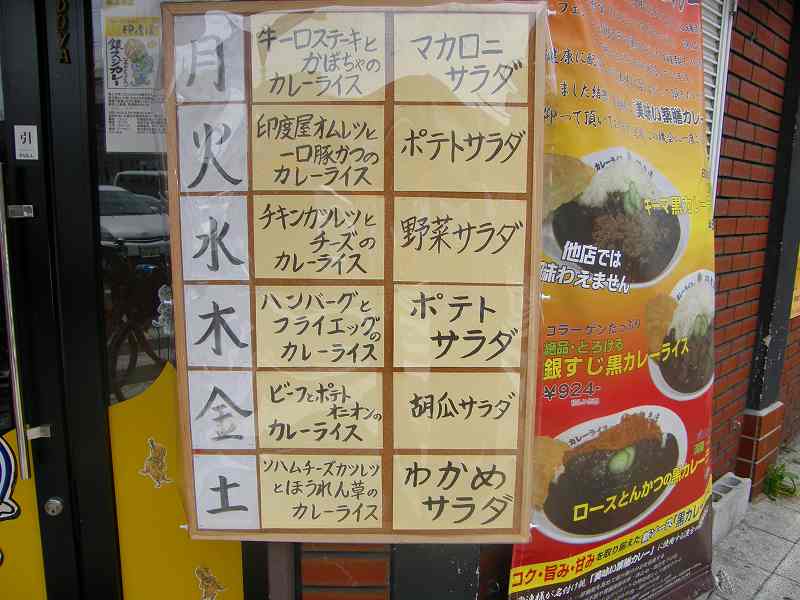 月
牛一口ステーキと
かぼちゃの
カレーライス
マカロニ
サラダ
火
印度屋オムレツと
一口豚かつの
カレーライス
ポテトサラダ
水
チキンカツレツと
チーズの
カレーライス
野菜サラダ
木
ハンバーグと
フライエッグの
カレーライス
ポテト
サラダ
金
ビーフとポテト
オニオンの
カレーライス
胡瓜サラダ
土
ソハムチーズカツレツ
とほうれん草の
カレーライス
わかめ
サラダ
引
PULL
銀スジカレー
美味い薬膳カレー
カレーライス
キーマ黒カレー
他店では
味わえません
コラーゲンたっぷり
絶品・とろける
銀すじ黒カレーライス
¥924-
カレーライス
ロースとんかつの黒カレー
コク・旨み・甘みを取り揃えた
「美味い薬膳カレー」